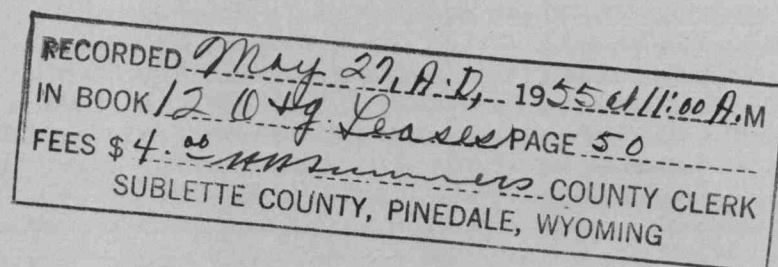 RECORDED May 27, A.D. 1955 at 11:00 A.M
IN BOOK 12 O & g. Leases PAGE 50
FEES $ 4.00 COUNTY CLERK
SUBLETTE COUNTY, PINEDALE, WYOMING